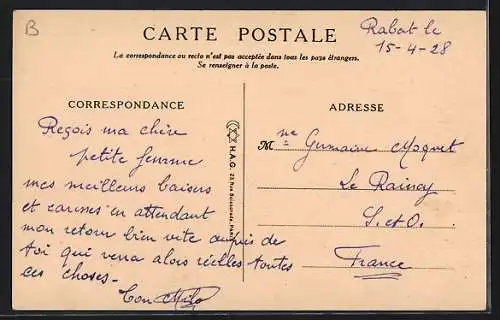 B
CARTE POSTALE
Rabat le
15-4-28
La correspondance au recto n'est pas acceptée dans tous les pays étrangers.
Se renseigner à la poste.
CORRESPONDANCE
ADRESSE
Reçois ma chère
petite femme
mes meilleurs baisers
et caresses en attendant
mon retour bien vite auprès de
toi qui verra alors réelles toutes
ces choses-
Ton
H.A.G.
Mme Germaine Moquet
Le Raincy
S. et O.
France